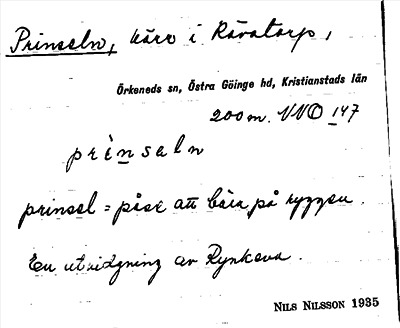 Prinseln, kärr i Rävatorp,
Örkeneds sn, Östra Göinge hd, Kristianstads län
200 m. VNO 147
prinseln
prinsel = påse att bära på ryggen.
En utvidgning av Rynkeva.
NILS NILSSON 1935